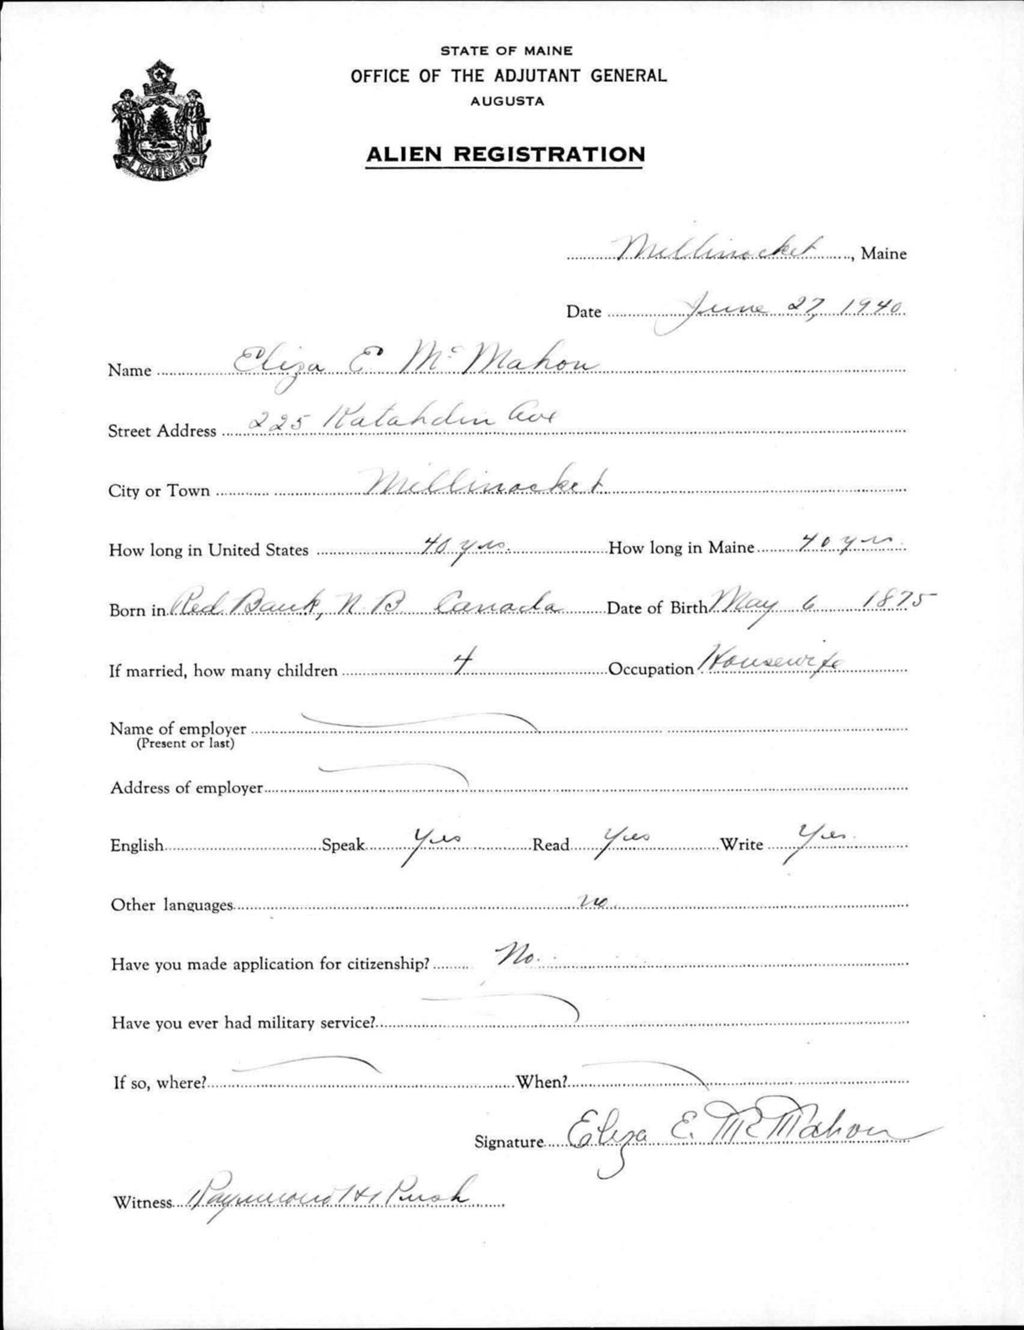 STATE OF MAINE
OFFICE OF THE ADJUTANT GENERAL
AUGUSTA
ALIEN REGISTRATION
MAINE
Millinocket, Maine
Date June 27, 1940
Name Eliza E Mc Mahon
Street Address 225 Katahdin Ave
City or Town Millinocket
How long in United States 40 yrs. How long in Maine 40 yrs.
Born in Red Bank, N B Canada Date of Birth May 6 1875
If married, how many children 4 Occupation Housewife
Name of employer
(Present or last)
Address of employer
English Speak Yes Read Yes Write Yes
Other languages no
Have you made application for citizenship? No.
Have you ever had military service?
If so, where? When?
Signature Eliza E. Mc Mahon
Witness Raymond H.